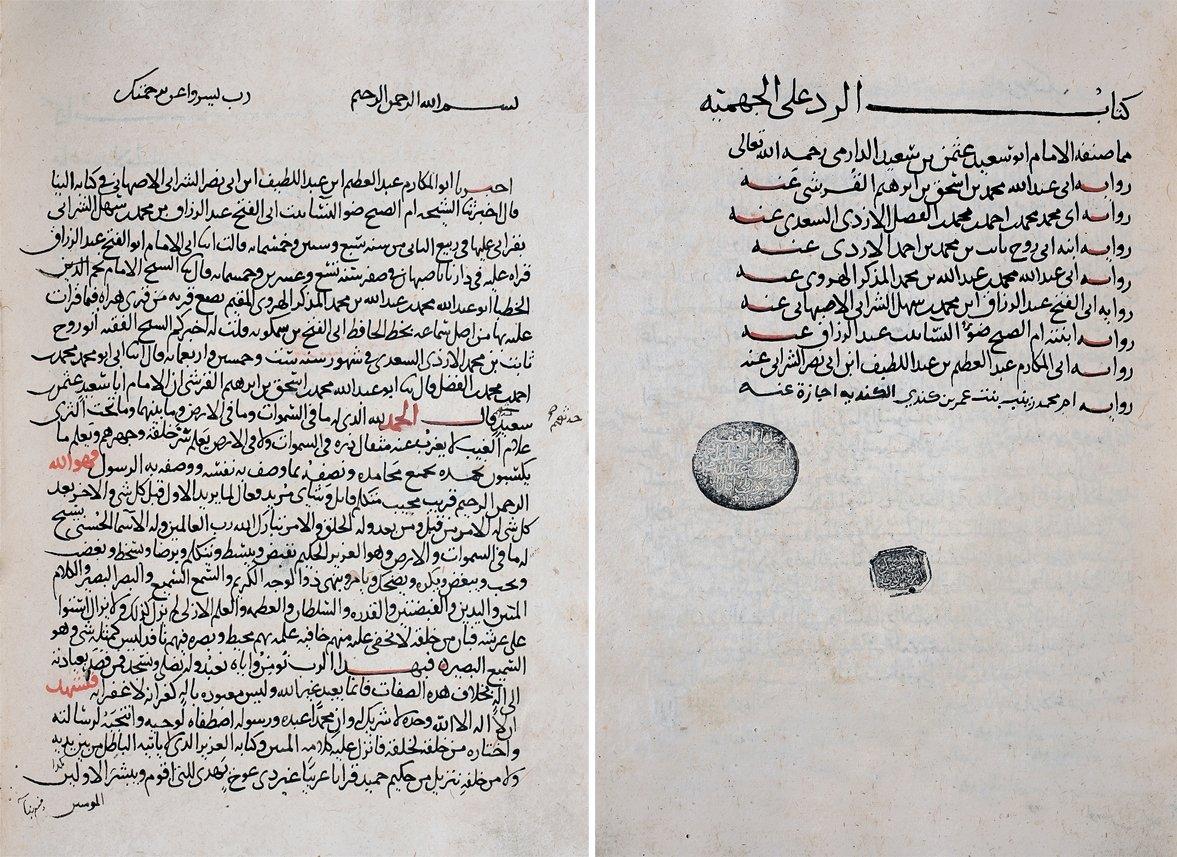 كتاب الرد على الجهمية
مما صنفه الامام ابو سعيد عثمن بن سعيد الدارمي رحمه الله تعالى
روايه ابي عبد الله محمد بن اسحق بن ابرهيم القرشي عنه
روايه ابي محمد محمد بن احمد بن محمد بن الفضل الازدي السعدي عنه
روايه ابنه ابي روح ثابت بن محمد بن احمد الازدي عنه
روايه ابي عبد الله محمد بن عبد الله بن محمد المذكر الهروي عنه
روايه ابي الفتح عبد الرزاق بن محمد بن سهل الشرابي الاصبهاني عنه
روايه ابنته ام الصبح ضوء النسا بنت عبد الرزاق عنه
روايه ابي المكارم عبد العظيم بن عبد اللطيف ابن ابي نصر الشرابي عنه
روايه ام محمد زينب بنت عمر بن كندي الكنديه اجازة عنه
بسم الله الرحمن الرحيم رب يسر واعن برحمتك
اخبرنا ابو المكارم عبد العظيم ابن عبد اللطيف ابن ابي نصر الشرابي الاصبهاني في كتابه الينا
قال اخبرتنا الشيخه ام الصبح ضو النسا بنت ابي الفتح عبد الرزاق بن محمد بن سهل الشرابي
بقراتي عليها في ربيع الثاني من سنه سبع وستين وخمسمايه قالت انا ابي الامام ابو الفتح عبد الرزاق
قراه عليه في دارنا باصبهان في صفر سنه تسع وعشرين وخمسمايه قال انا الشيخ الامام مجد الدين
الخطبا ابو عبد الله محمد بن عبد الله بن محمد المذكر الهروي المقيم قريه من قرى هراه فيما قرات
عليه بها من اصل سماعه بخط الحافظ ابي الفتح بن سمكويه قلت له اخبركم الشيخ الفقيه ابو روح
ثابت بن محمد الازدي السعدي في شهور سنه ست وخمسين واربعمايه قال انا ابي ابو محمد محمد بن
احمد بن محمد بن الفضل قال انا ابو عبد الله محمد بن اسحق بن ابرهيم القرشي ان الامام ابا سعيد عثمن بن
سعيد قال الحمد لله الذي له ما في السموات وما في الارض وما بينهما وما تحت الثرى
علام الغيب لا يعزب عنه مثقال ذره في السموات ولا في الارض يعلم سر خلقه وجهرهم ويعلم ما
يكسبون نحمده بجميع محامده ونصفه بما وصف به نفسه ووصفه به الرسول فهو الله
الرحمن الرحيم قريب مجيب متكلم قايل وشاى مريد فعال لما يريد الاول قبل كل شي والاخر بعد
كل شي له الامر من قبل ومن بعد وله الخلق والامر تبارك الله رب العالمين وله الاسما الحسنى يسبح
له ما في السموات والارض وهو العزيز الحكيم يقبض ويبسط ويتكلم ويرضا ويسخط ويغضب
ويحب ويبغض ويكره ويضحك ويامر وينهى ذو الوجه الكريم والسمع السميع والبصر البصير والكلام
المبين واليدين والقبضتين والقدره والسلطان والعظمه والعلم الازلي لم يزل كذلك ولا يزال استوا
على عرشه فبان من خلقه لا تخفى عليه منهم خافيه علمه بهم محيط وبصره فيهم نافذ ليس كمثله شي وهو
السميع البصير فبهذا الرب نومن واياه نعبد وله نصلي ونسجد فمن قصد بعبادته
الى اله بخلاف هذه الصفات فانما يعبد غير الله وليس معبوده باله كفرانه لا غفرانه فنشهد
ان لا اله الا الله وحده لا شريك له وان محمدا عبده ورسوله اصطفاه لوحيه وانتخبه لرسالته
واختاره من خلقه لخلقه فانزل عليه كلامه المبين وكتابه العزيز الذي لا ياتيه الباطل من بين يديه
ولا من خلفه تنزيل من حكيم حميد قرانا عربيا غير ذي عوج يهدي للتي اقوم ويبشر الاولين